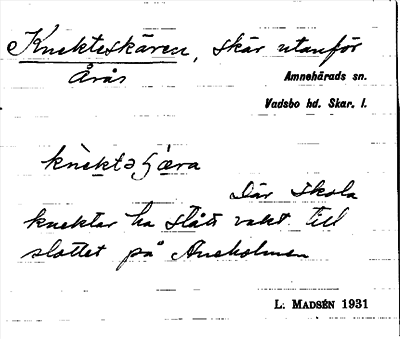 Knekteskären, skär utanför
Årås
Amnehärads sn.
Vadsbo hd. Skar. l.
Där skola
knektar ha stått vakt till
slottet på Aneholmen
L. MADSÉN 1931